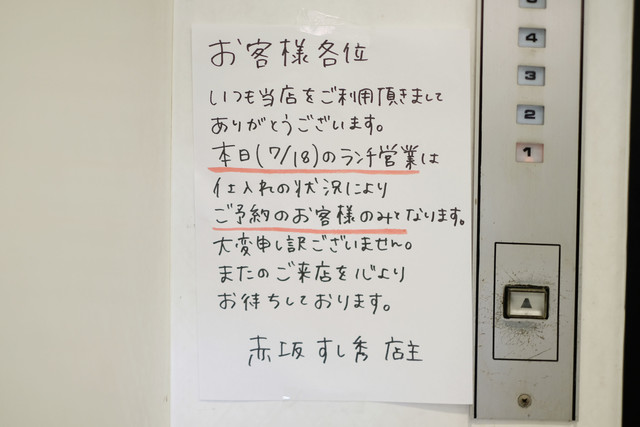 お客様各位
いつも当店をご利用頂きまして
ありがとうございます。
本日(7/18)のランチ営業は
仕入れの状況により
ご予約のお客様のみとなります。
大変申し訳ございません。
またのご来店を心より
お待ちしております。
赤坂 すし秀 店主
5
4
3
2
1
▲